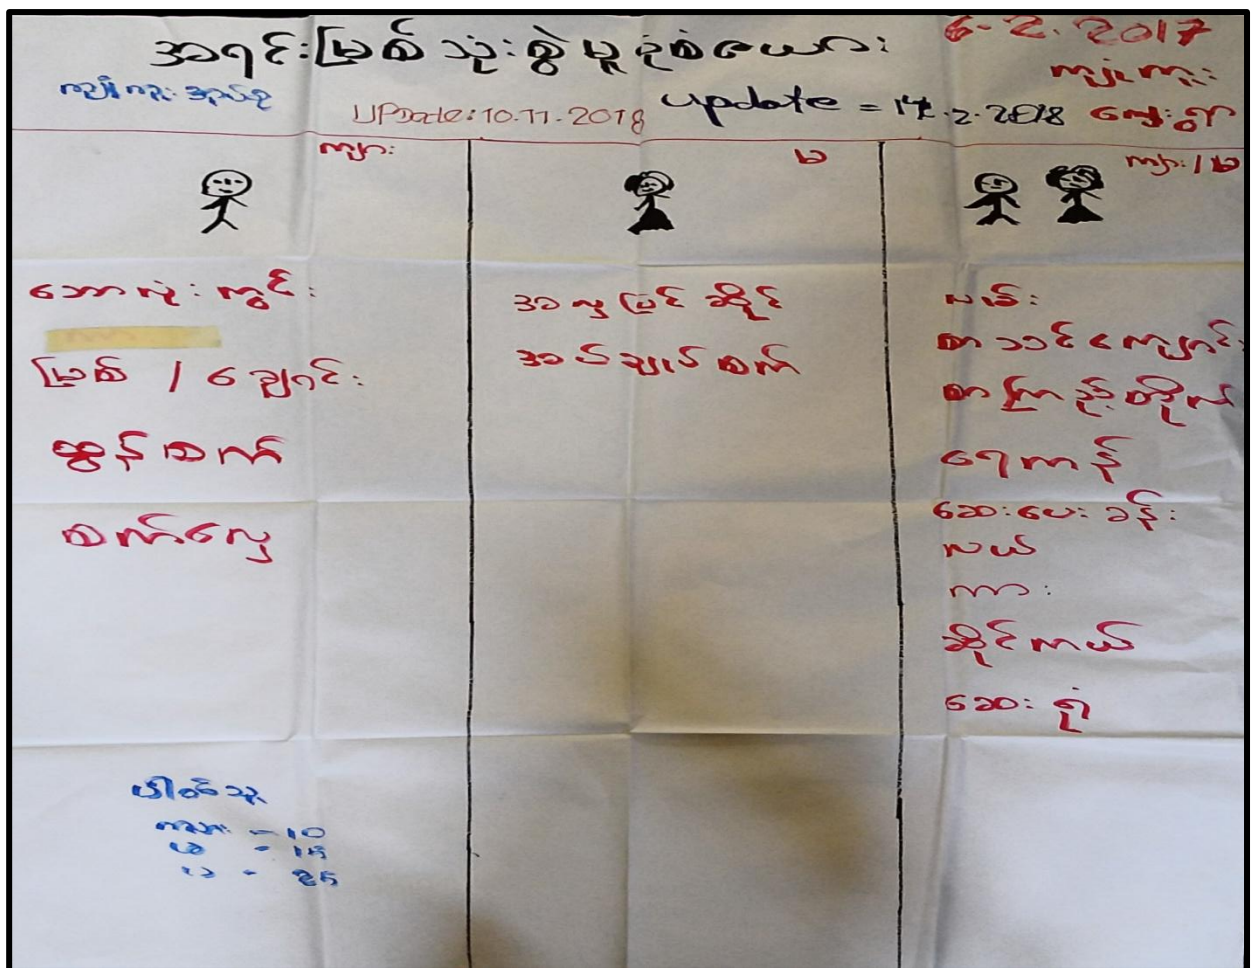 အရင်းမြစ်သုံးစွဲမှုပုံစံဇယား
6-2.2017
ကျုံကူး
ကျုံကူး အုပ်စု
UPDate: 10.11.2018
update = 14.2.2018
ကျေးရွာ
ကျား
မ
ကျား/မ
ဘောလုံးကွင်း
မြစ် / ချောင်း
ထွန်စက်
စက်လှေ
အလှပြင်ဆိုင်
အပ်ချုပ်စက်
လမ်း
စာသင်ကျောင်း
စာကြည့်တိုက်
ရေကန်
ဆေးပေးခန်း
လယ်
ကား
ဆိုင်ကယ်
ဆေးရုံ
ပါဝင်သူ
ကျား = 10
မ = 15
ပေါင်း = 25